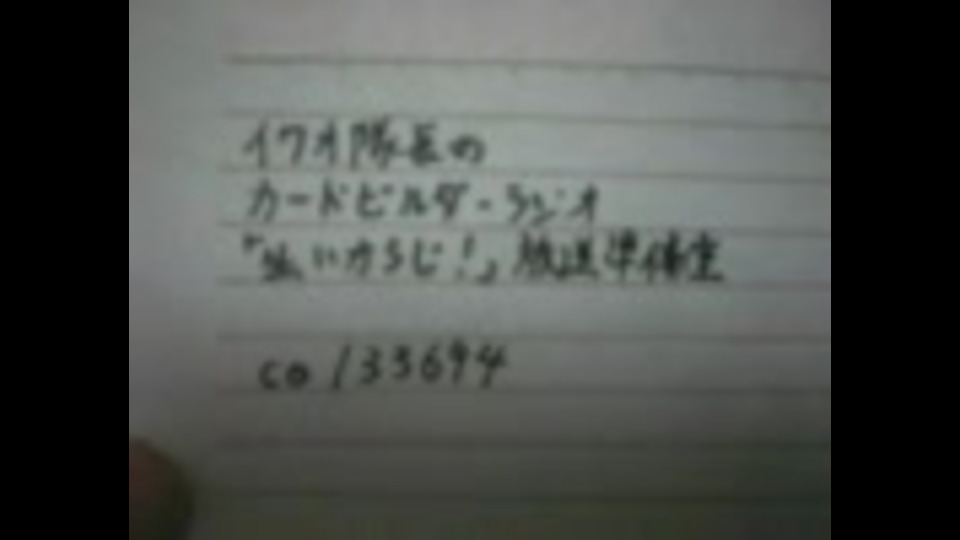 イワオ隊長の
カードビルダーラジオ
「生いからじ!」放送準備室
co133694